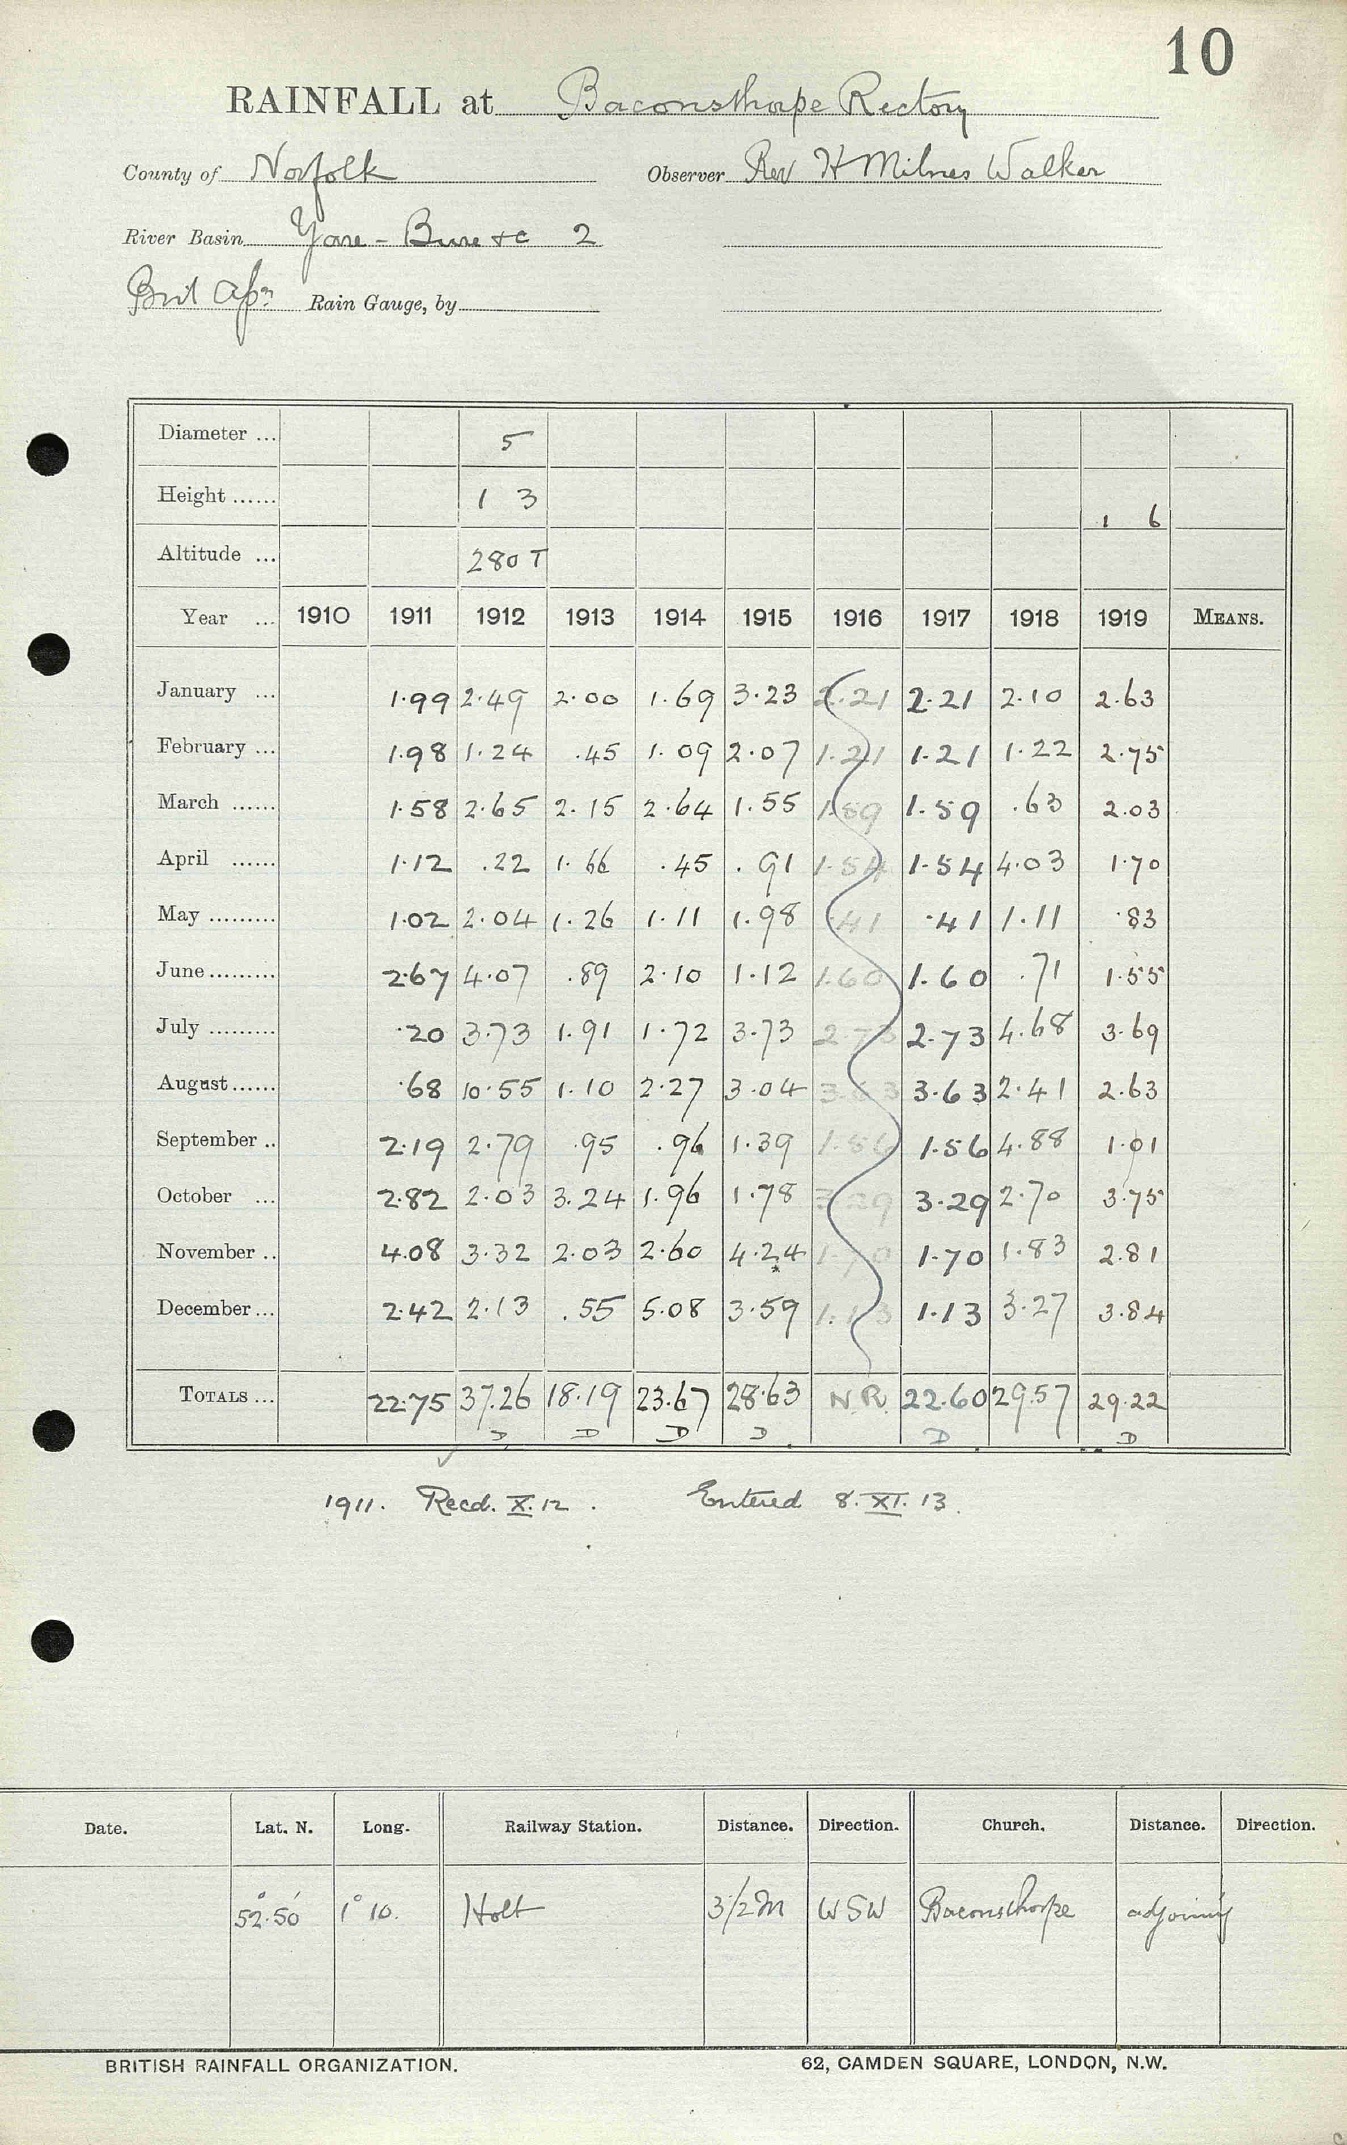 10
RAINFALL at Baconsthorpe Rectory
County of Norfolk Observer Rev H Milnes Walker
River Basin Yare - Bure &c 2
Brit Apn Rain Gauge, by
Diameter ... 5
Height ...... 1 3 1 6
Altitude ... 280 T
Year ... 1910 1911 1912 1913 1914 1915 1916 1917 1918 1919 MEANS.
January ... 1.99 2.49 2.00 1.69 3.23 2.21 2.21 2.10 2.63
February ... 1.98 1.24 .45 1.09 2.07 1.21 1.21 1.22 2.75
March ...... 1.58 2.65 2.15 2.64 1.55 1.59 1.59 .63 2.03
April ...... 1.12 .22 1.66 .45 .91 1.54 1.54 4.03 1.70
May ......... 1.02 2.04 1.26 1.11 1.98 .41 .41 1.11 .83
June ......... 2.67 4.07 .89 2.10 1.12 1.60 1.60 .71 1.55
July ......... .20 3.73 1.91 1.72 3.73 2.73 2.73 4.68 3.69
August ...... .68 10.55 1.10 2.27 3.04 3.63 3.63 2.41 2.63
September .. 2.19 2.79 .95 .96 1.39 1.56 1.56 4.88 1.01
October ... 2.82 2.03 3.24 1.96 1.78 3.29 3.29 2.70 3.75
November .. 4.08 3.32 2.03 2.60 4.24 1.70 1.70 1.83 2.81
*
December ... 2.42 2.13 .55 5.08 3.59 1.13 1.13 3.27 3.84
TOTALS ... 22.75 37.26 18.19 23.67 28.63 N.R. 22.60 29.57 29.22
D D D D D D
1911. Recd. X.12. Entered 8.XI.13.
Date. Lat. N. Long. Railway Station. Distance. Direction. Church. Distance. Direction.
52°.50' 1° 10. Holt 3 1/2 M WSW Baconsthorpe adjoining
BRITISH RAINFALL ORGANIZATION. 62, CAMDEN SQUARE, LONDON, N.W.